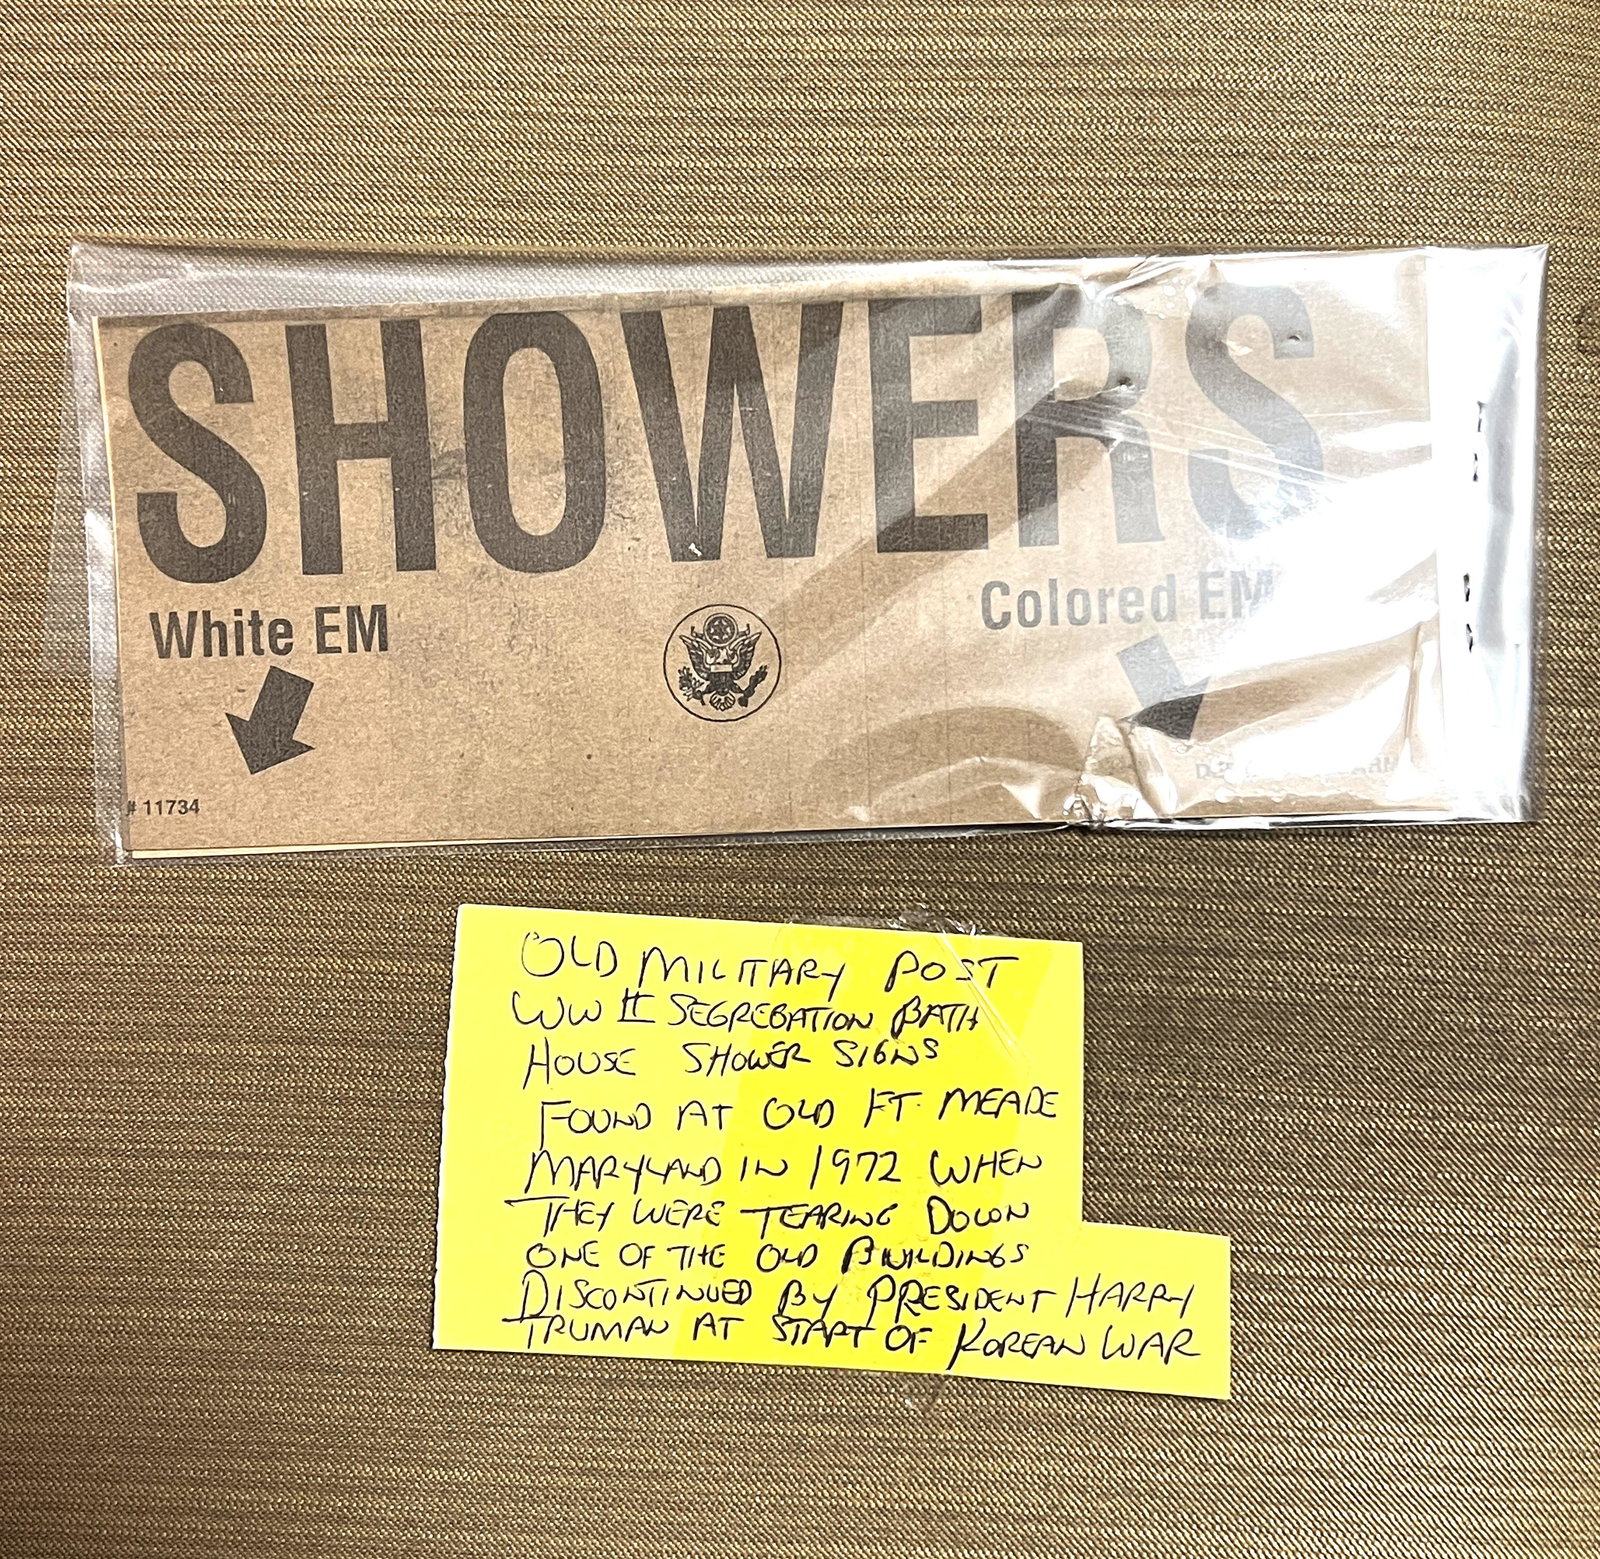 SHOWERS
White EM
Colored EM
# 11734
OLD MILITARY POST
WW II SEGREGATION BATH
HOUSE SHOWER SIGNS
FOUND AT OLD FT. MEADE
MARYLAND IN 1972 WHEN
THEY WERE TEARING DOWN
ONE OF THE OLD BUILDINGS
DISCONTINUED BY PRESIDENT HARRY
TRUMAN AT START OF KOREAN WAR